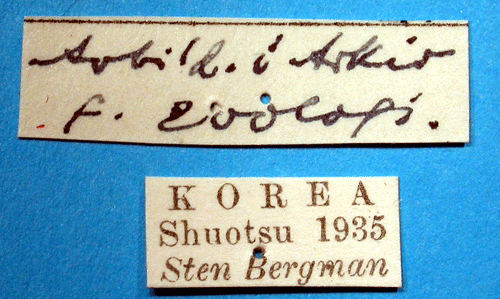 Avbild. i Arkiv
f. Zoologi.
K O R E A
Shuotsu 1935
Sten Bergman